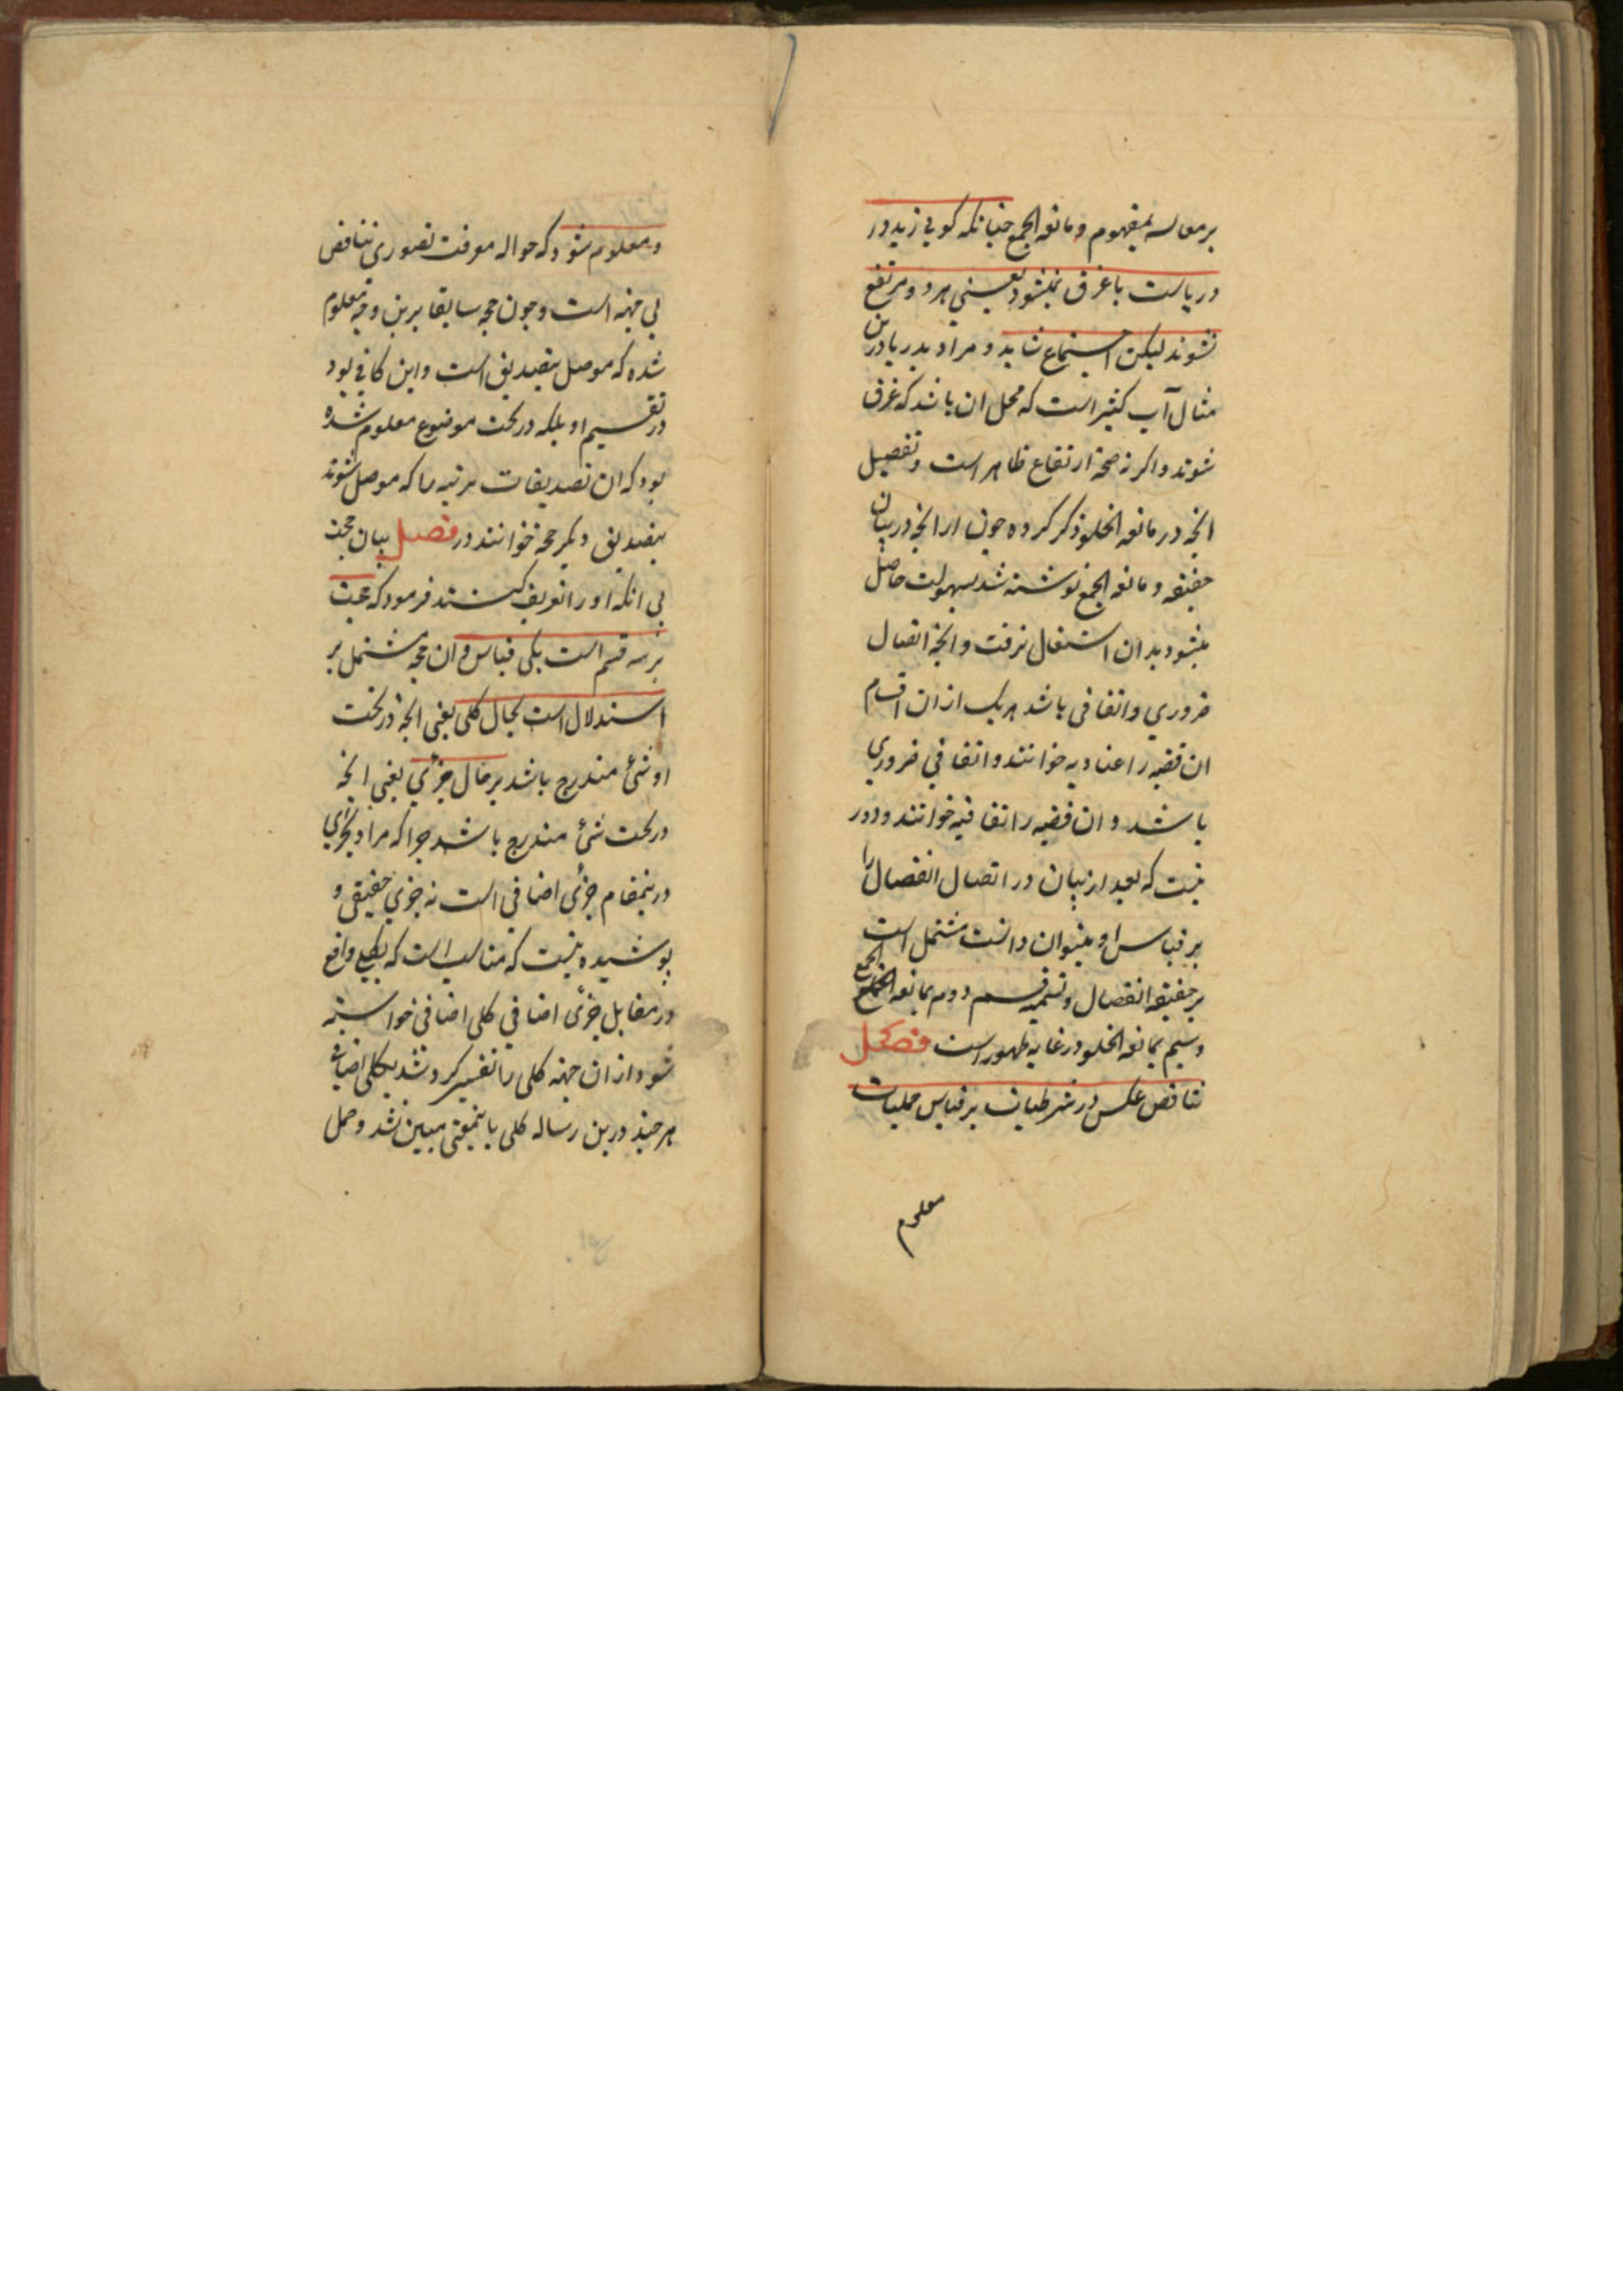 بر معاسه بمفهوم و مانعه الجمع چنانکه کوئی زید در
دریاست یا غرق نمیشود یعنی هر دو مرتفع
نشوند لیکن اجتماع شاید و مراد بدریا درین
مثال آب کثیر است که محل ان باشد که غرق
شوند و اکر نه صحة ارتفاع ظاهر است و تفصیل
انچه در مانعه الخلو ذکر کرده چون از انچه در بیان
حقیقه و مانعه الجمع نوشته شد بسهولت حاصل
میشود بدان اشتغال نرفت و انچه اتصال
ضروری و اتفاقی باشد هر یک از ان اقسام
ان قضیه را عنادیه خوانند و اتفاقی ضروری
باشد و ان قضیه را اتفاقیه خوانند و دور
نیست که بعد از بیان در اتصال انفصال را
بر قیاس او میتوان دانست مشتمل است
بر حقیقه انفصال و تسمیه قسم دوم بمانعه الجمع
و سیم بمانعه الخلو در غایه ظهور است فصل
تناقض عکس در شرطیات بر قیاس حملیات
معلوم
و معلوم شود که حواله معرفت تصوری تناقض
بی جهة است و چون حجه سابقا برین وجه معلوم
شده که موصل بتصدیق است و این کافی بود
در تقسیم او بلکه در بحث موضوع معلوم شده
بود که ان تصدیقات مرتبه را که موصل شوند
بتصدیق دیکر حجه خوانند در فصل بیان حجت
بی انکه او را تعریف کنند فرمود که حجت
بر سه قسم است یکی قیاس و ان حجه مشتمل بر
استدلال است بحال کلی یعنی انچه در تحت
او شئ مندرج باشد بر حال جزئی یعنی انچه
در تحت شئ مندرج باشد چرا که مراد بجزئی
درینمقام جزئی اضافی است نه جزئی حقیقی و
پوشیده نیست که مناسب است که بکلی واقع
در مقابل جزئی اضافی کلی اضافی خواسته
شود از ان جهة کلی را تفسیر کرده شد بکلی اضافی
هر چند درین رساله کلی باینمعنی مبین نشد و حمل